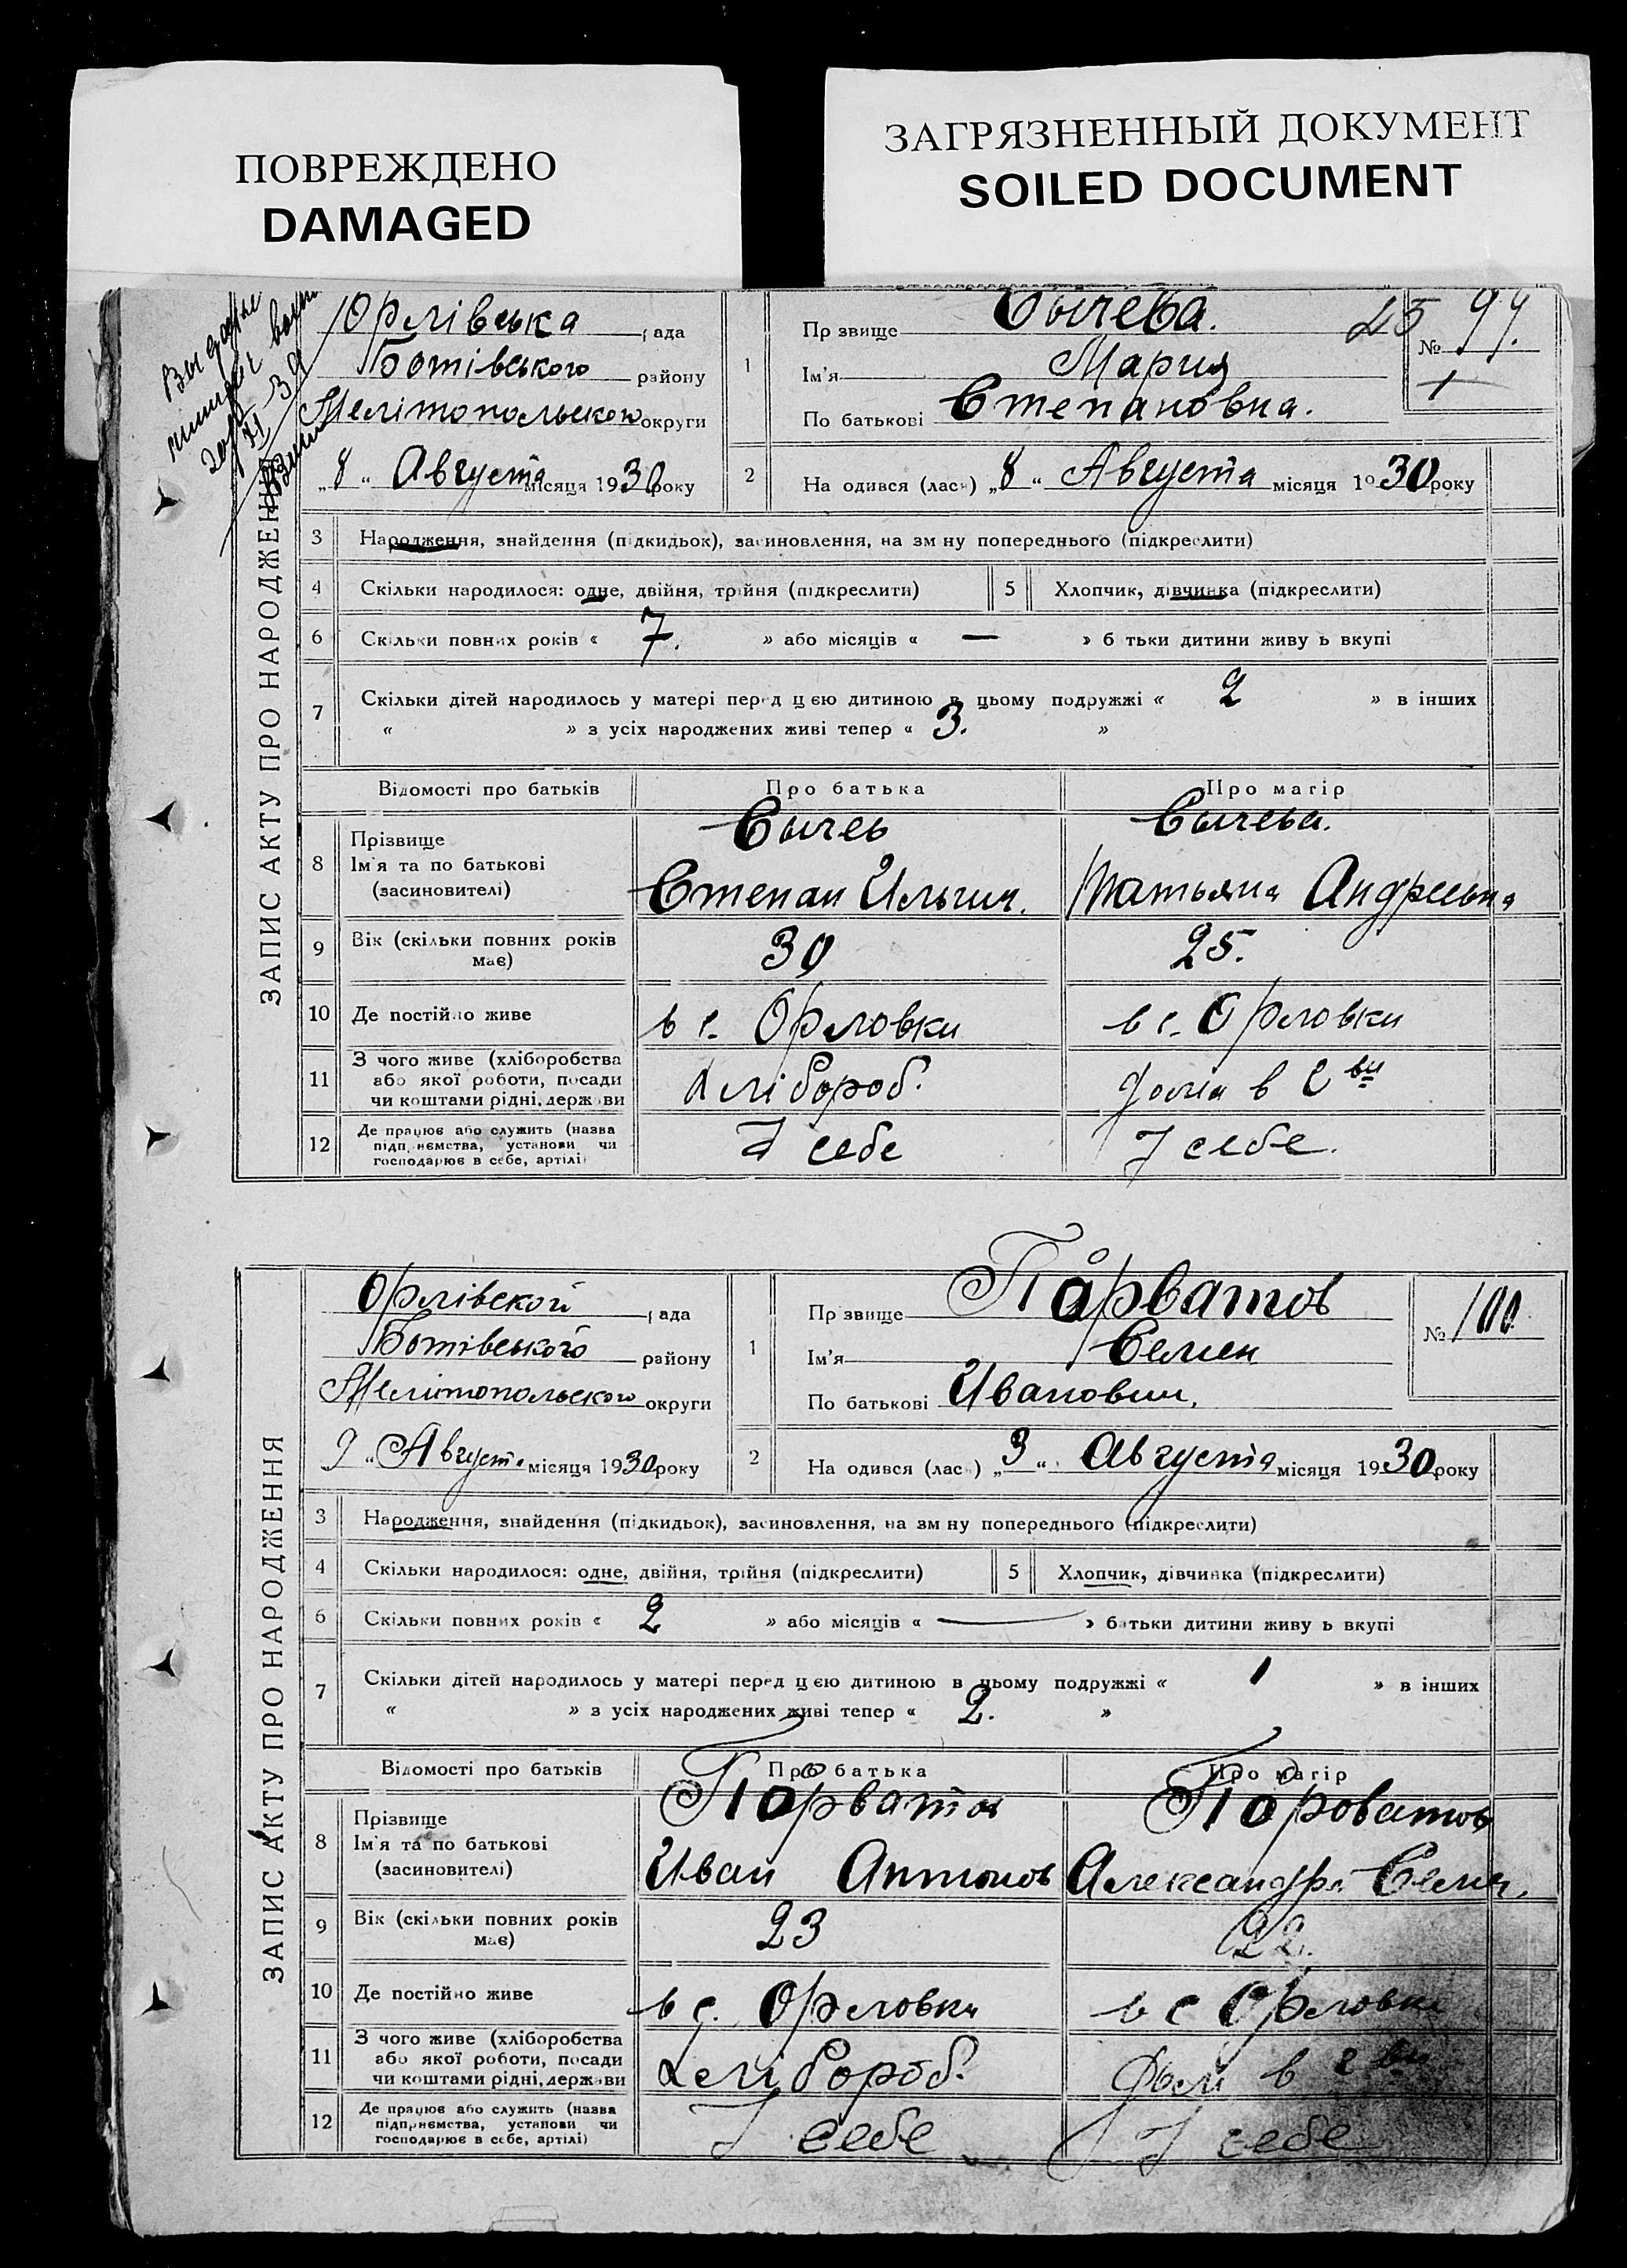 ПОВРЕЖДЕНО
DAMAGED
ЗАГРЯЗНЕННЫЙ ДОКУМЕНТ
SOILED DOCUMENT
ЗАПИС АКТУ ПРО НАРОДЖЕННЯ
Орлівська рада
Ботівського району
Мелітопольского округи
„8“ Августа місяця 1930 року
1
Прізвище Сычева.
Ім'я Мария
По батькові Степановна.
25 № 99.
2
Народився (лась) „8“ Августа місяця 1930 року
3 Народження, знайдення (підкидьок), засиновлення, на зміну попереднього (підкреслити)
4 Скільки народилося: одне, двійня, трійня (підкреслити)
5 Хлопчик, дівчинка (підкреслити)
6 Скільки повних років « 7. » або місяців « — » батьки дитини живуть вкупі
7 Скільки дітей народилось у матері перед цією дитиною в цьому подружжі « 2 » в інших
« » з усіх народжених живі тепер « 3. »
Відомості про батьків Про батька Про матір
8 Прізвище
Ім'я та по батькові
(засиновителі)
Сычев
Степан Ильич.
Сычева.
Татьяна Андреевна
9 Вік (скільки повних років має) 30 25.
10 Де постійно живе в с. Орловки в с. Орловки
11 З чого живе (хліборобства
або якої роботи, посади
чи коштами рідні, держави
хлібороб.
12 Де працює або служить (назва
підприємства, установи чи
господарює в себе, артілі)
У себе У себе.
ЗАПИС АКТУ ПРО НАРОДЖЕННЯ
Орлівской рада
Ботівського району
Мелітопольского округи
9 “ Августа місяця 1930 року
1
Прізвище Порватов
Ім'я Семен
По батькові Иванович,
№ 100
2
Народився (лась) „3“ Августа місяця 1930 року
3 Народження, знайдення (підкидьок), засиновлення, на зміну попереднього (підкреслити)
4 Скільки народилося: одне, двійня, трійня (підкреслити)
5 Хлопчик, дівчинка (підкреслити)
6 Скільки повних років « 2 » або місяців « — » батьки дитини живуть вкупі
7 Скільки дітей народилось у матері перед цією дитиною в цьому подружжі « 1 » в інших
« » з усіх народжених живі тепер « 2. »
Відомості про батьків Про батька Про матір
8 Прізвище
Ім'я та по батькові
(засиновителі)
Порватов
Иван Антонов
Пороватов
Александра Семен.
9 Вік (скільки повних років має) 23 22.
10 Де постійно живе в с. Орловки в с Орловки
11 З чого живе (хліборобства
або якої роботи, посади
чи коштами рідні, держави
хлібороб.
12 Де працює або служить (назва
підприємства, установи чи
господарює в себе, артілі)
У себе У себе